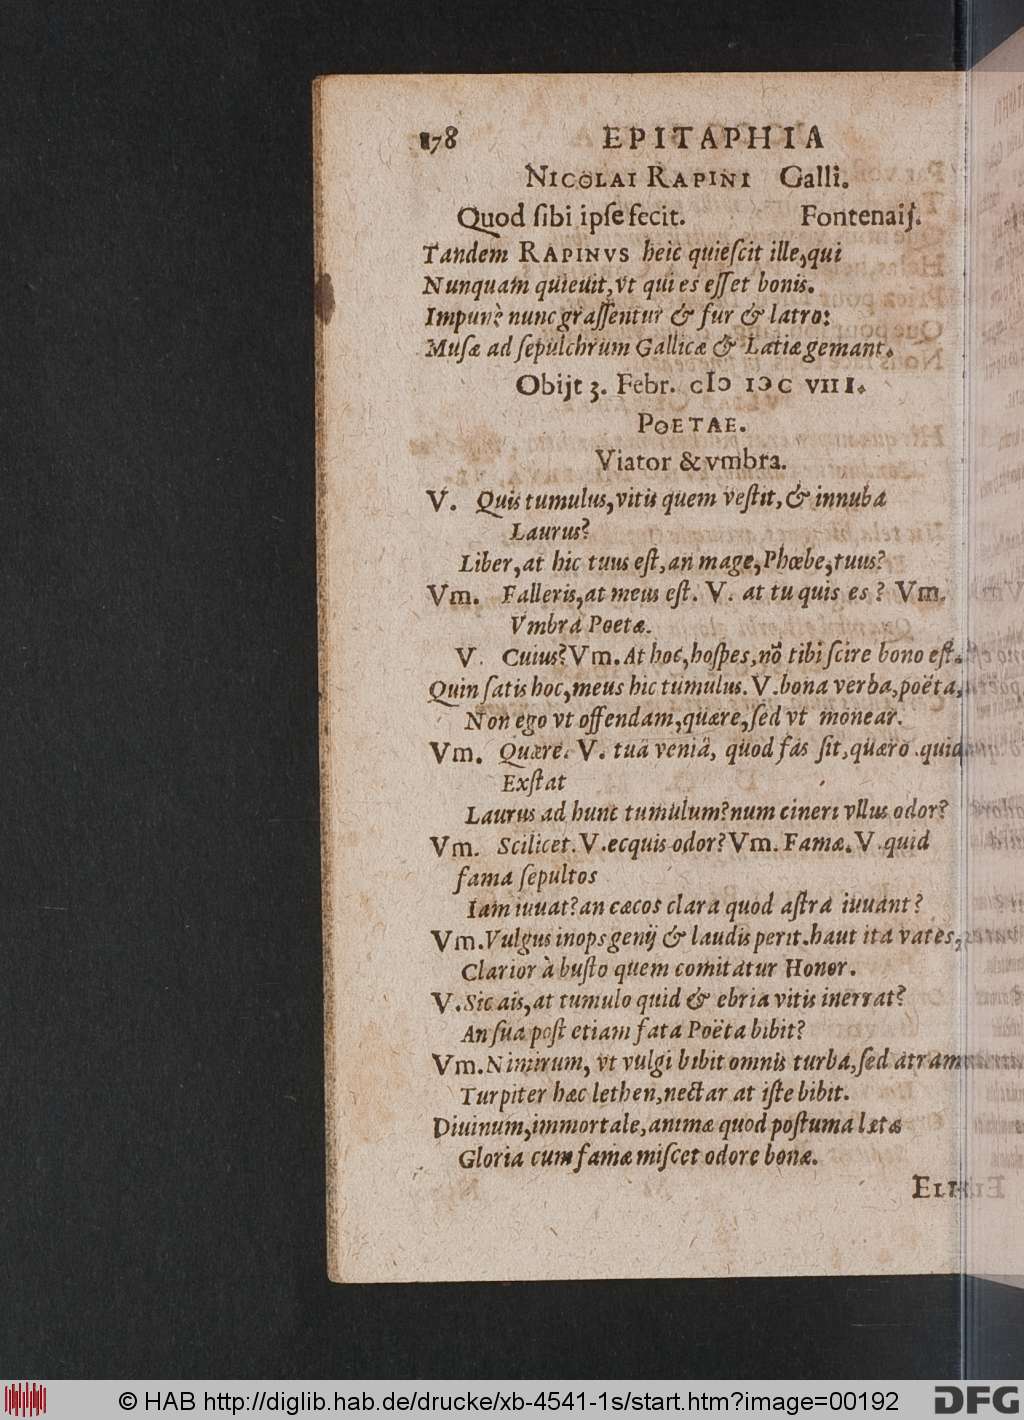 178 EPITAPHIA
NICOLAI RAPINI Galli.
Quod ſibi ipſe fecit. Fontenaij.
Tandem RAPINVS heic quieſcit ille, qui
Nunquam quieuit, vt qui es eſſet bonis.
Impunè nunc graſſentur & fur & latro:
Muſæ ad ſepulchrum Gallicæ & Latiæ gemant.
Obijt 3. Febr. cIↄ Iↄc VIII.
POETAE.
Viator & vmbra.
V. Quis tumulus, vitis quem veſtit, & innuba
Laurus?
Liber, at hic tuus eſt, an mage, Phœbe, tuus?
Vm. Falleris, at meus eſt. V. at tu quis es? Vm.
Vmbra Poetæ.
V. Cuius? Vm. At hoc, hoſpes, nõ tibi ſcire bono eſt.
Quin ſatis hoc, meus hic tumulus. V. bona verba, poëta,
Non ego vt offendam, quære, ſed vt monear.
Vm. Quære. V. tuâ veniâ, quod fas ſit, quæro. quid
Exſtat
Laurus ad hunc tumulum? num cineri vllus odor?
Vm. Scilicet. V. ecquis odor? Vm. Famæ. V. quid
fama ſepultos
Iam iuuat? an cæcos clara quod aſtra iuuant?
Vm. Vulgus inops genij & laudis perit. haut ita vates,
Clarior à buſto quem comitatur Honor.
V. Sic ais, at tumulo quid & ebria vitis inerrat?
An ſua poſt etiam fata Poëta bibit?
Vm. Nimirum, vt vulgi bibit omnis turba, ſed atram
Turpiter hæc lethen, nectar at iſte bibit.
Diuinum, immortale, animæ quod poſtuma lætæ
Gloria cum famæ miſcet odore bonæ.
© HAB http://diglib.hab.de/drucke/xb-4541-1s/start.htm?image=00192 DFG